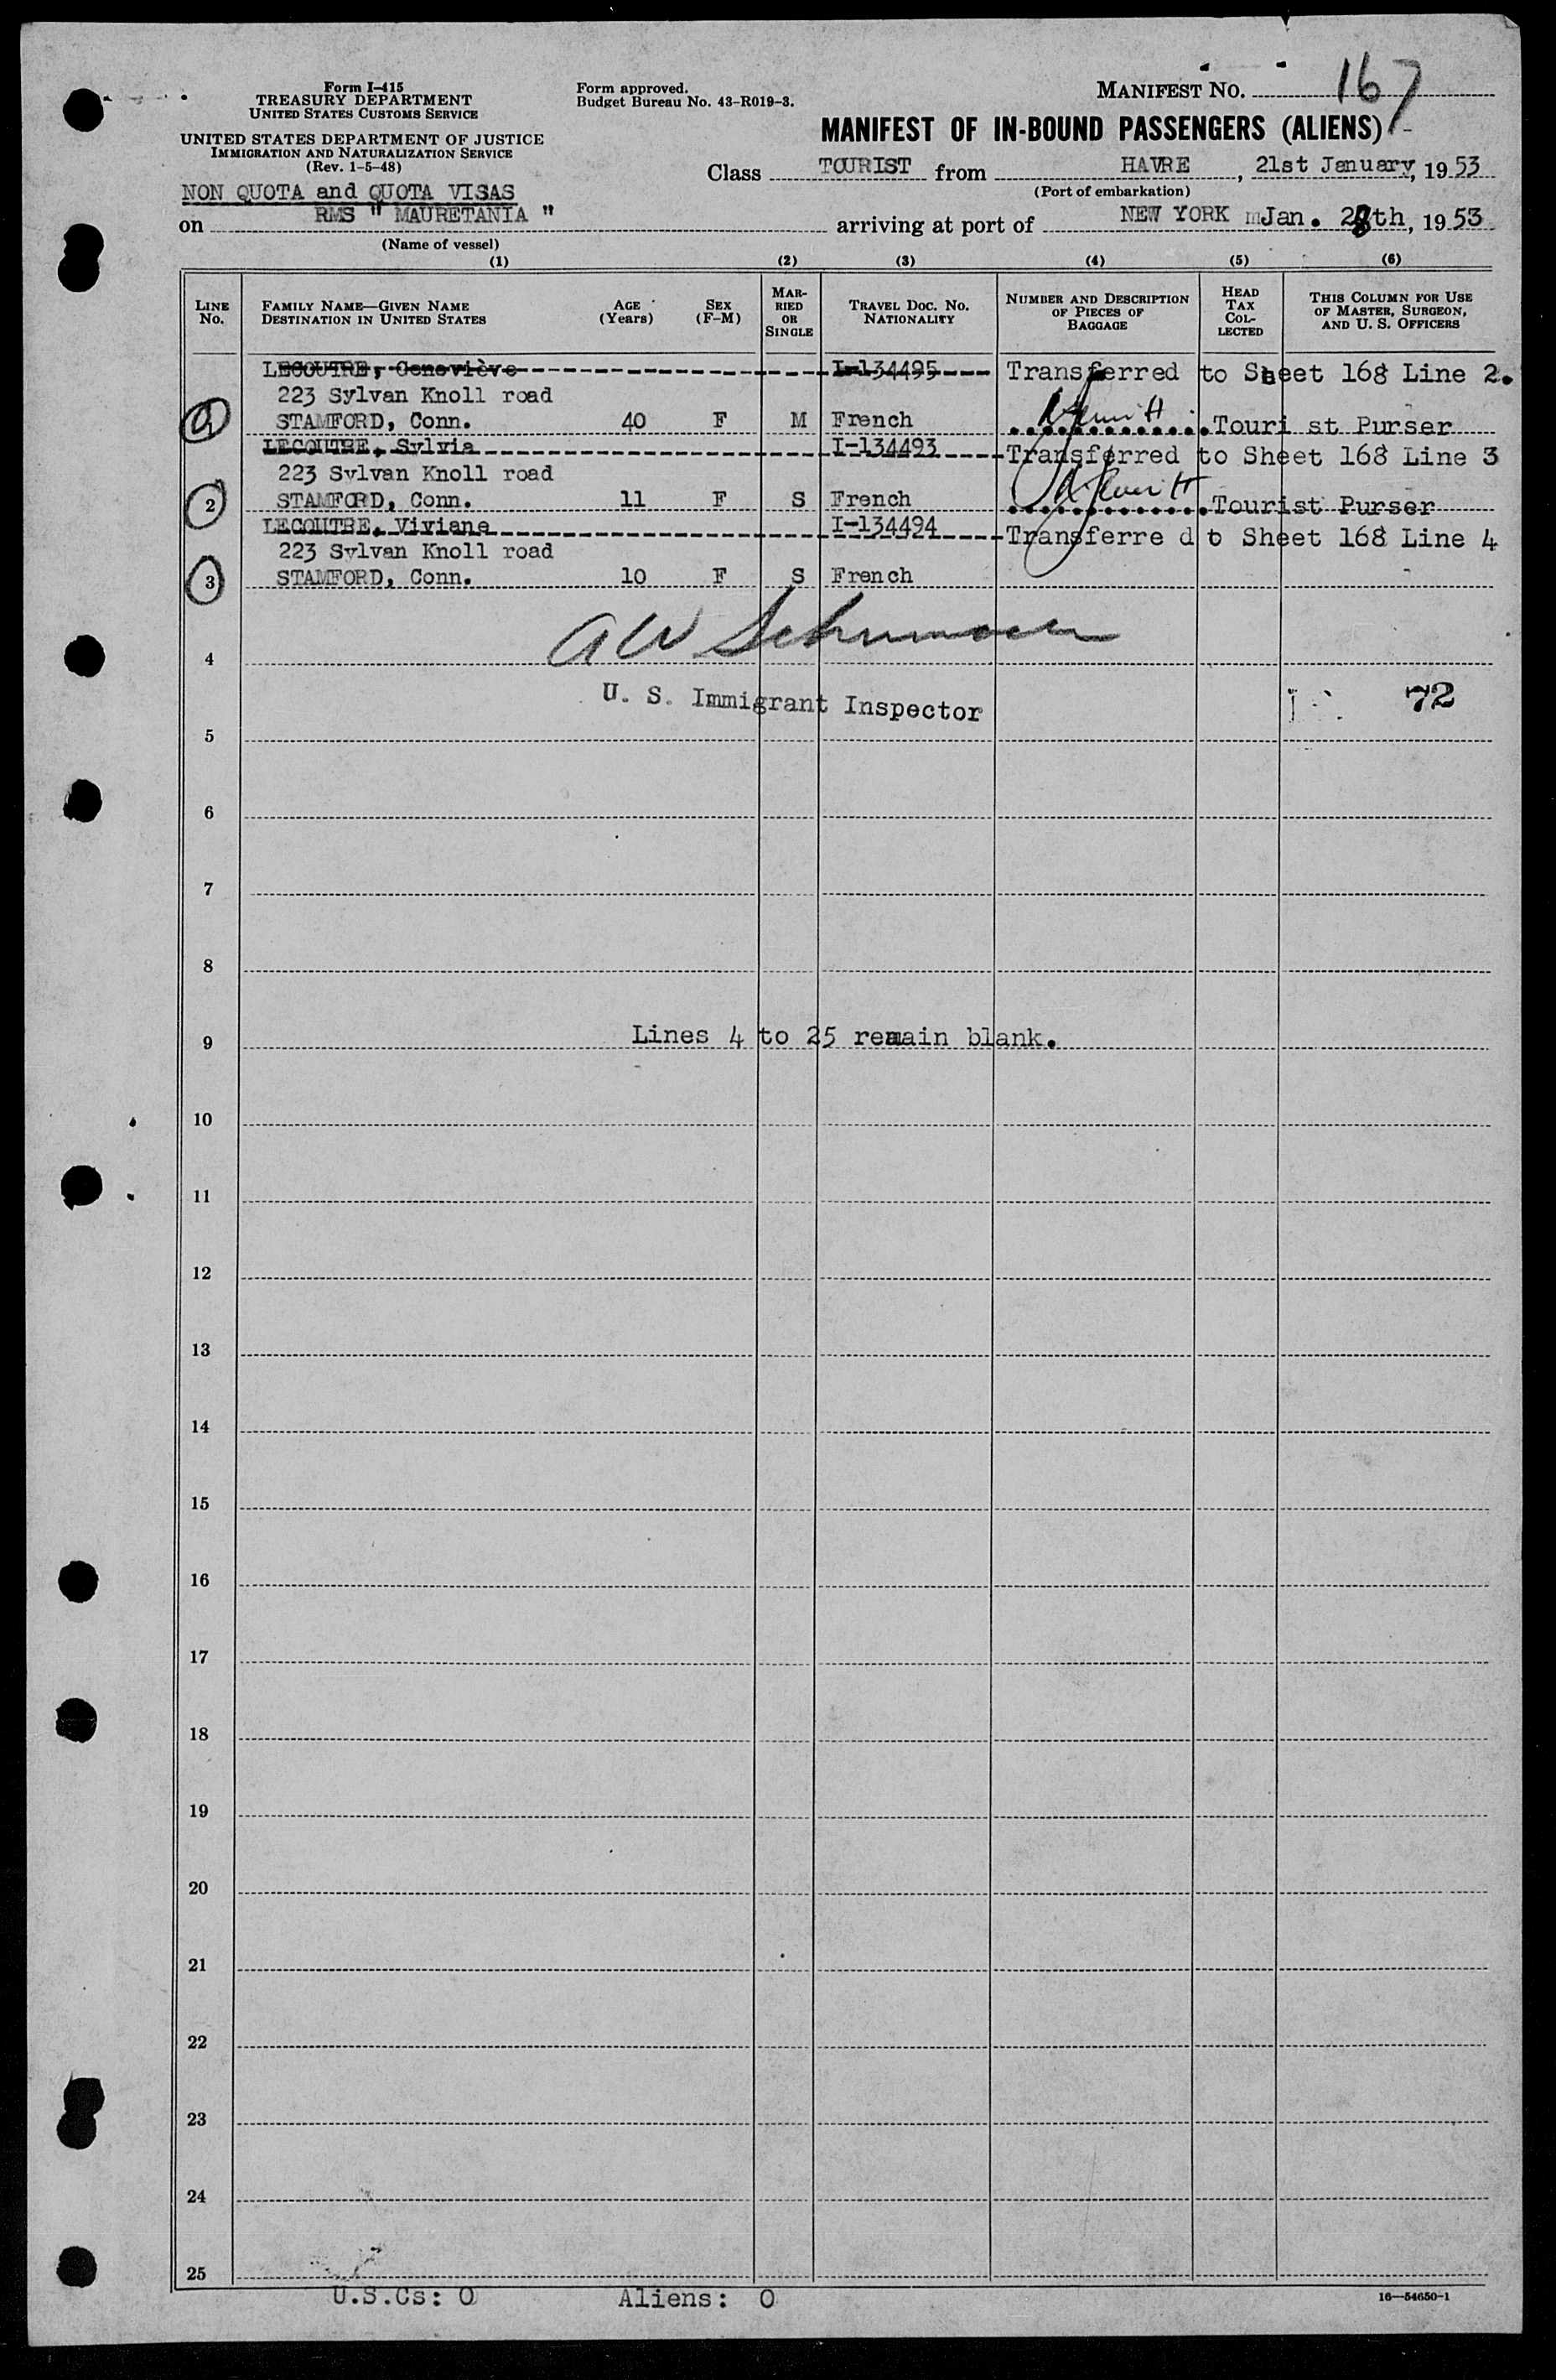 Form I-415
TREASURY DEPARTMENT
UNITED STATES CUSTOMS SERVICE
UNITED STATES DEPARTMENT OF JUSTICE
IMMIGRATION AND NATURALIZATION SERVICE
(Rev. 1-5-48)
Form approved.
Budget Bureau No. 43-R019-3.
MANIFEST NO. 167
MANIFEST OF IN-BOUND PASSENGERS (ALIENS)
Class TOURIST from HAVRE, 21st January, 1953
(Port of embarkation)
NON QUOTA and QUOTA VISAS
on RMS " MAURETANIA " arriving at port of NEW YORK Jan. 28th, 1953
(Name of vessel)
(1) (2) (3) (4) (5) (6)
LINE No. FAMILY NAME—GIVEN NAME DESTINATION IN UNITED STATES AGE (Years) SEX (F-M) MARRIED OR SINGLE TRAVEL DOC. NO. NATIONALITY NUMBER AND DESCRIPTION OF PIECES OF BAGGAGE HEAD TAX COLLECTED THIS COLUMN FOR USE OF MASTER, SURGEON, AND U. S. OFFICERS
LECOUTRE, Geneviève I-134495 Transferred to Sheet 168 Line 2.
223 Sylvan Knoll road
STAMFORD, Conn. 40 F M French Touri st Purser
LECOUTRE, Sylvia I-134493 Transferred to Sheet 168 Line 3
223 Sylvan Knoll road
2 STAMFORD, Conn. 11 F S French Tourist Purser
LECOUTRE, Viviane I-134494 Transferre d to Sheet 168 Line 4
223 Sylvan Knoll road
3 STAMFORD, Conn. 10 F S French
4
U. S. Immigrant Inspector 72
5
6
7
8
9 Lines 4 to 25 remain blank.
10
11
12
13
14
15
16
17
18
19
20
21
22
23
24
25
U.S.Cs: 0 Aliens: 0
16—54650-1